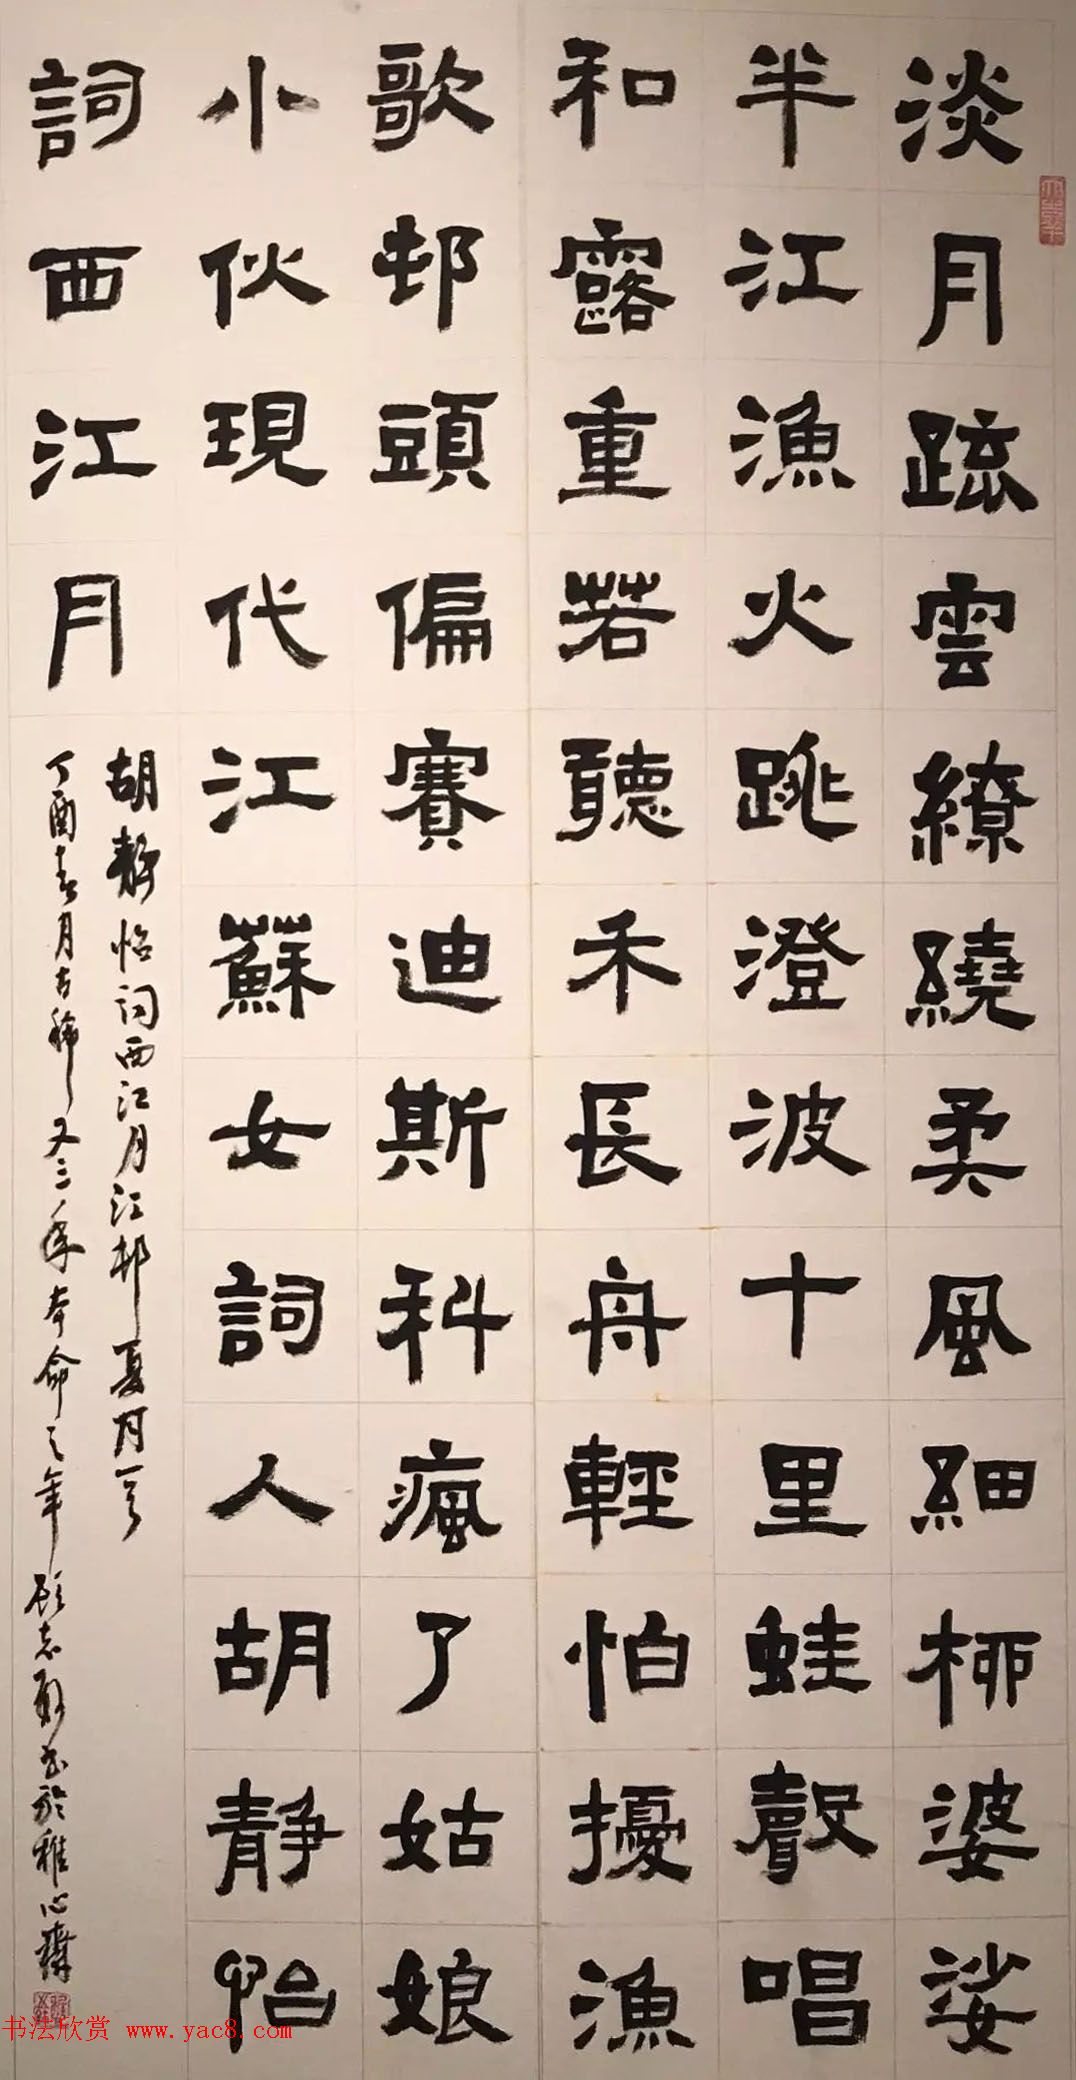 淡月疏雲繚繞柔風細柳婆娑
半江漁火跳澄波十里蛙聲唱
和露重若聽禾長舟輕怕擾漁
歌邨頭偏賽迪斯科瘋了姑娘
小伙現代江蘇女詞人胡靜怡
詞西江月
胡靜怡词西江月江邨夏月一首
丁酉春月古稀又三年本命之年志书於心齋
书法欣赏 www.yac8.com